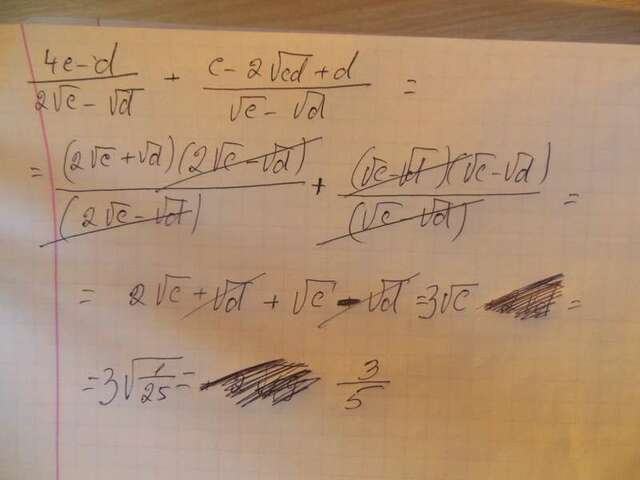 (4c-d)/(2√c-√d) + (c-2√cd+d)/(√c-√d) =
= (2√c+√d)(2√c-√d)/(2√c-√d) + (√c-√d)(√c-√d)/(√c-√d) =
= 2√c+√d+√c-√d=3√c =
=3√(1/25)= 3/5